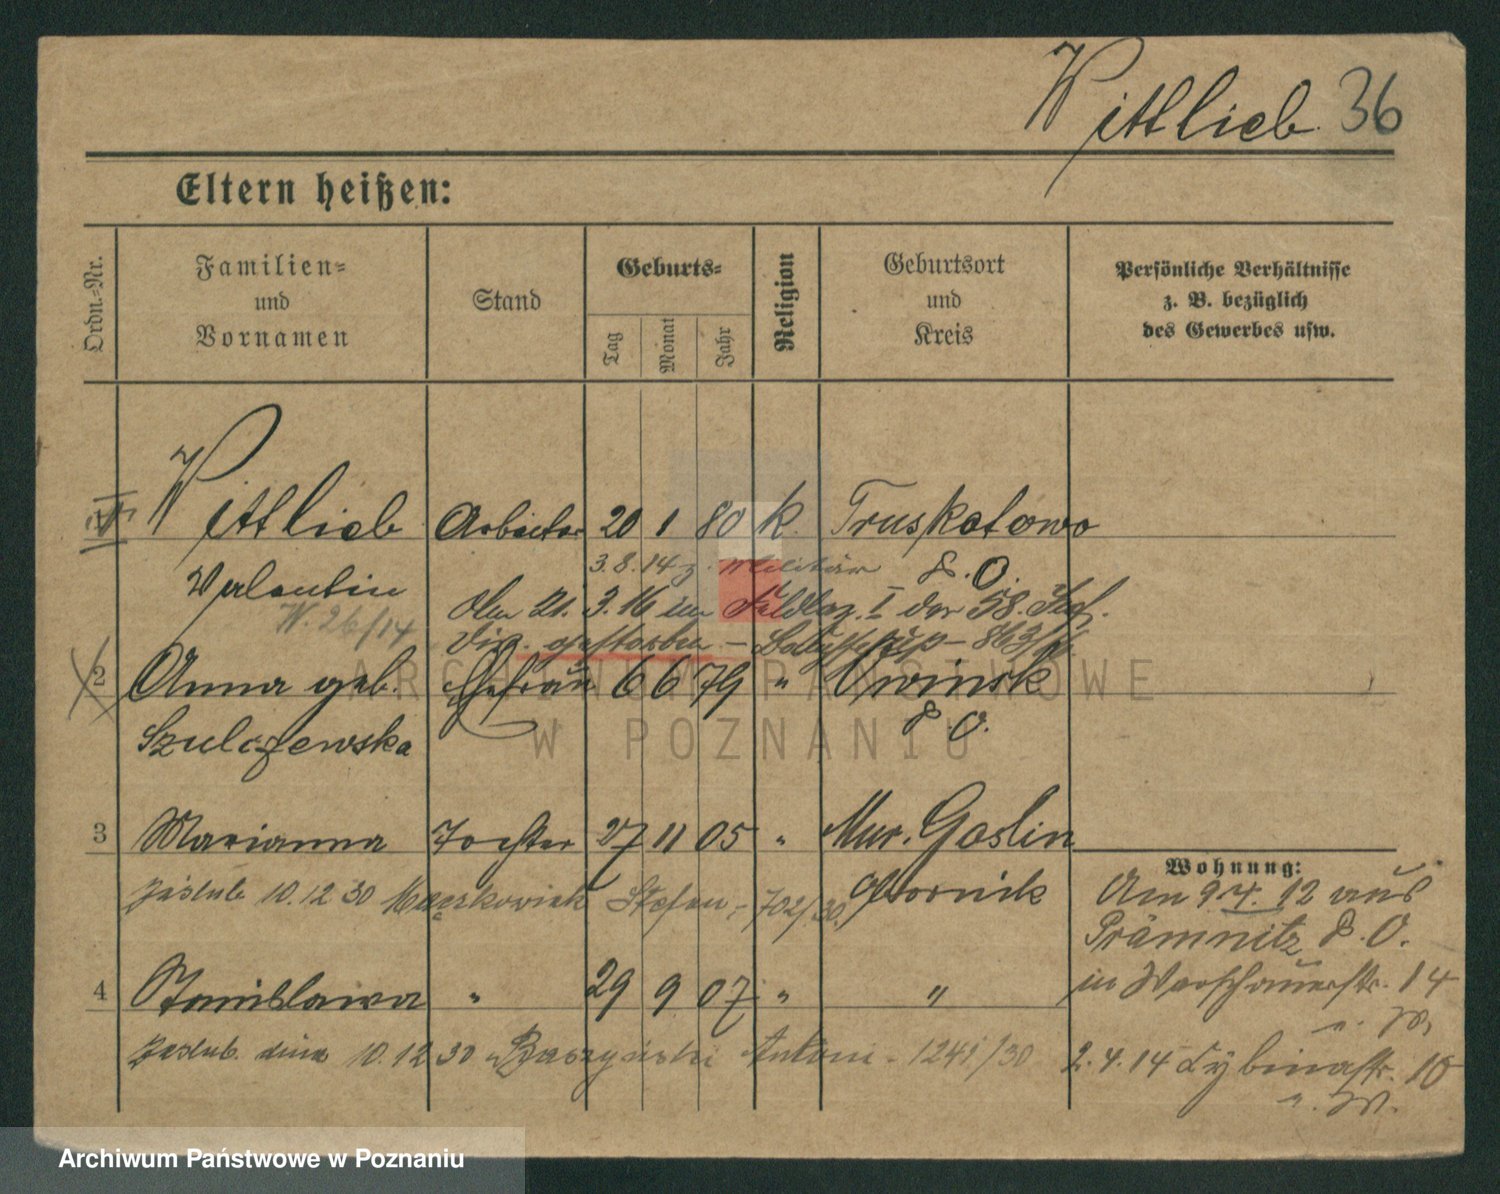 Wittlieb. 36
Eltern heißen:
Ordn.-Nr.
Familien-
und
Vornamen
Stand
Geburts-
Tag
Monat
Jahr
Religion
Geburtsort
und
Kreis
Persönliche Verhältnisse
z. B. bezüglich
des Gewerbes usw.
Wittlieb Arbeiter 20 1 80 k. Truskotowo
3.8.14 z. Militär
Valentin K. O.
Am 21. 3. 16 im Feldlaz. I der 58. Inf.
W. 26/14
Div. gestorben –
2 Anna geb. Ehefrau 6 6 79 " Owinsk
Szulczewska K. O.
3 Marianna Tochter 27 11 05 " Mur. Goslin
10.12.30 Stefan - 702/30 Obornik
4 Stanislawa " 29 9 07 " "
10.12.30 Antoni - 1241/30
Wohnung:
Am 9.4.12 aus
Prämnitz K. O.
in Warschauerstr. 14
2.4.14 Cybinastr. 10
ARCHIWUM PAŃSTWOWE
W POZNANIU
Archiwum Państwowe w Poznaniu